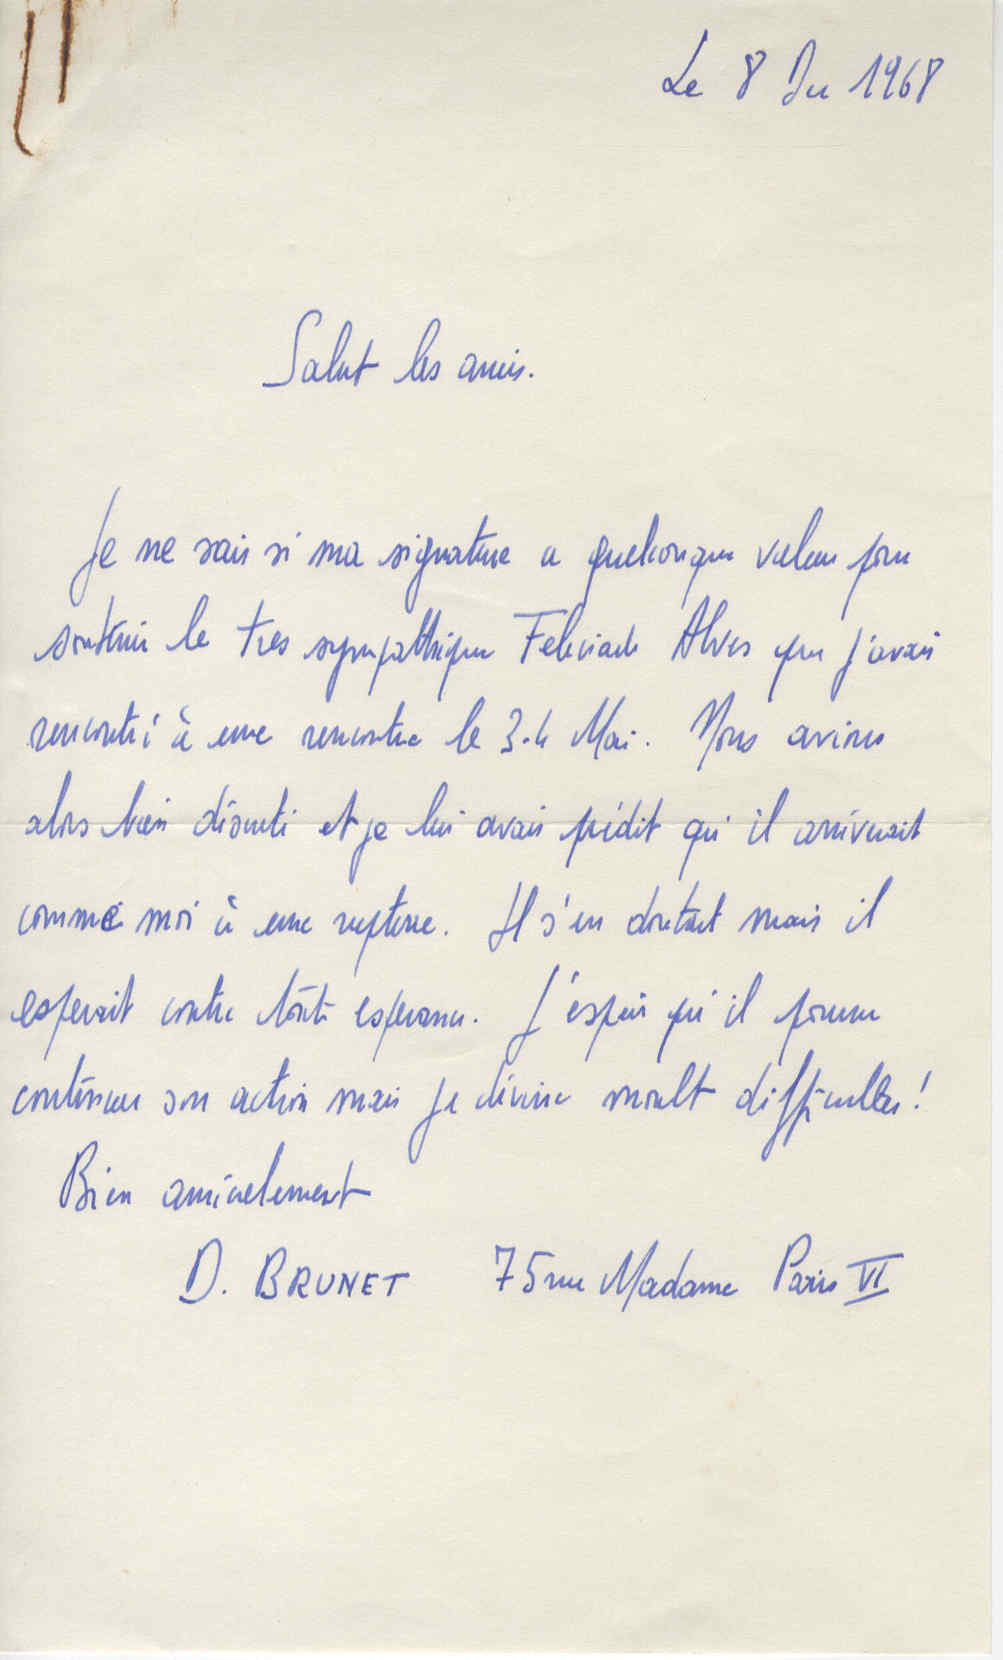 Le 8 Dec 1968
Salut les amis.
Je ne sais si ma signature a quelconque valeur pour
soutenir le tres sympathique Feliciade Alves que j'avais
rencontré à une rencontre le 3.4 Mai. Nous avions
alors bien discuté et je lui avais prédit qu'il arriverait
comme moi à une rupture. Il s'en doutait mais il
esperait contre toute esperance. J'espère qu'il pourra
continuer son action mais je devine moult difficultés!
Bien amicalement
D. BRUNET 75 rue Madame Paris VI